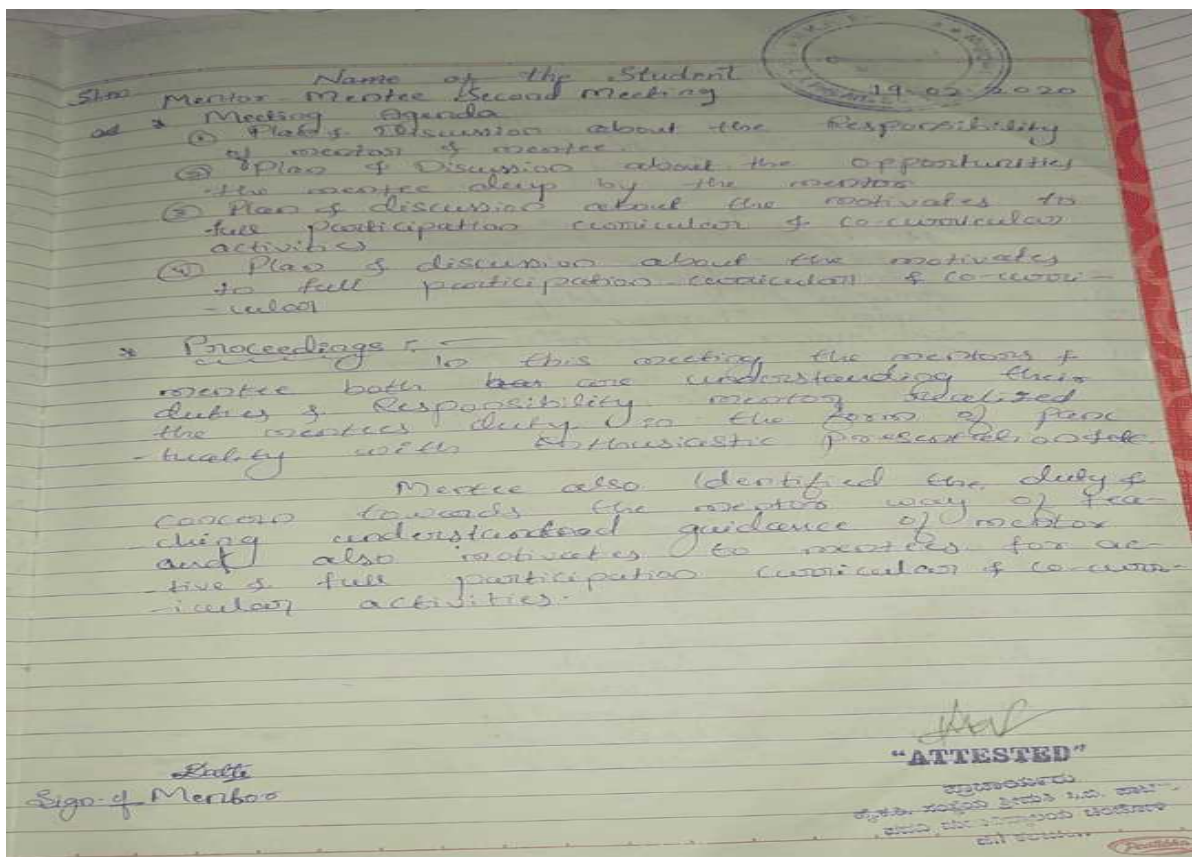 Name of the Student
Sl.no Mentor Mentee Second Meeting 19-02-2020
* Meeting Agenda
① Plan & Discussion about the Responsibility
of mentor & mentee.
② Plan & Discussion about the opportunities
the mentee by the mentor
③ Plan & discussion about the motivates to
full participation curricular & co-curricular
activities
④ Plan & discussion about the motivates
to full participation curricular & co-curri-
-cular
* Proceedings :-
In this meeting the mentors &
mentee both are understanding their
duties & Responsibility mentor realized
the mentees duty in the form of punc
-tuality with Enthusiastic
Mentee also Identified the duty &
concern towards the mentor way of tea-
-ching understood guidance of mentor
and also motivates to mentees for ac-
-tive & full participation curricular & co-curr-
-icular activities.
"ATTESTED"
Sign of Mentor